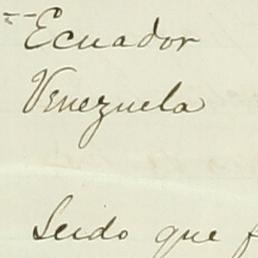 Ecuador
Venezuela
Leido que f